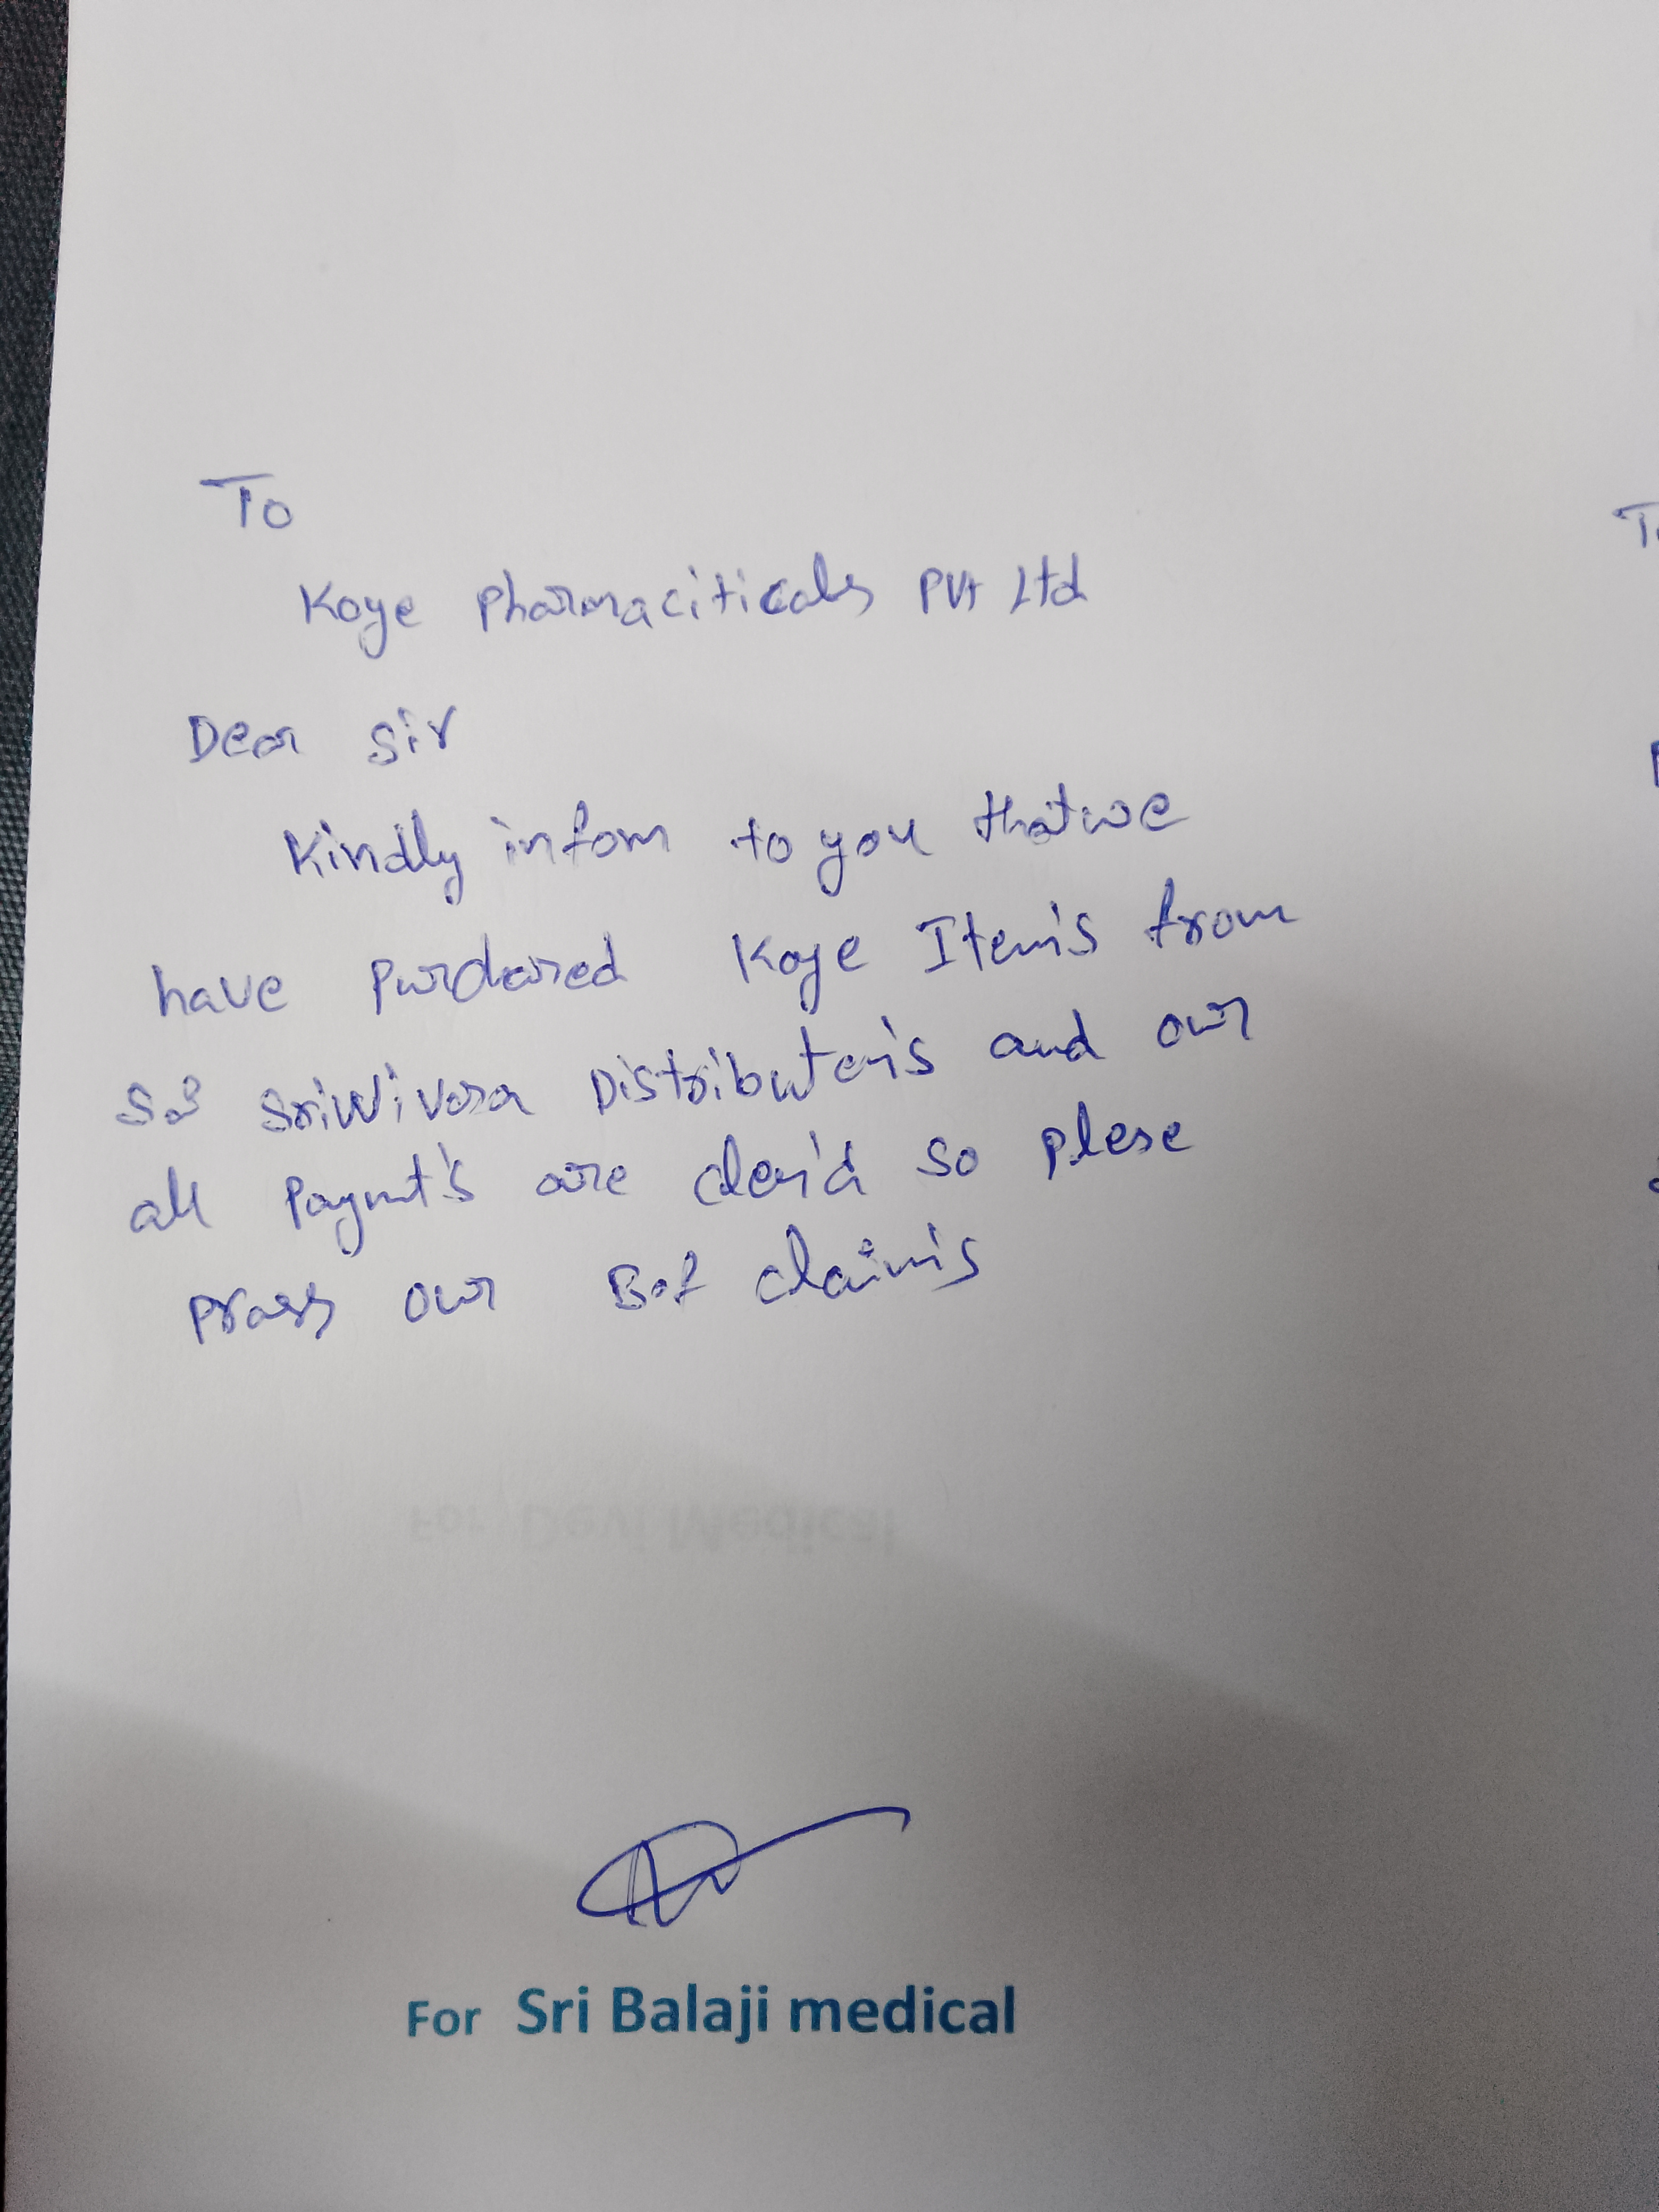 To
Koye Pharmaciticals Pvt Ltd
Dear Sir
Kindly infom to you that we
have Purchased Koye Item's from
Distributer's and our
all Paymt's are cler'd so plese
our claim's
For Devi Medical
For Sri Balaji medical
To